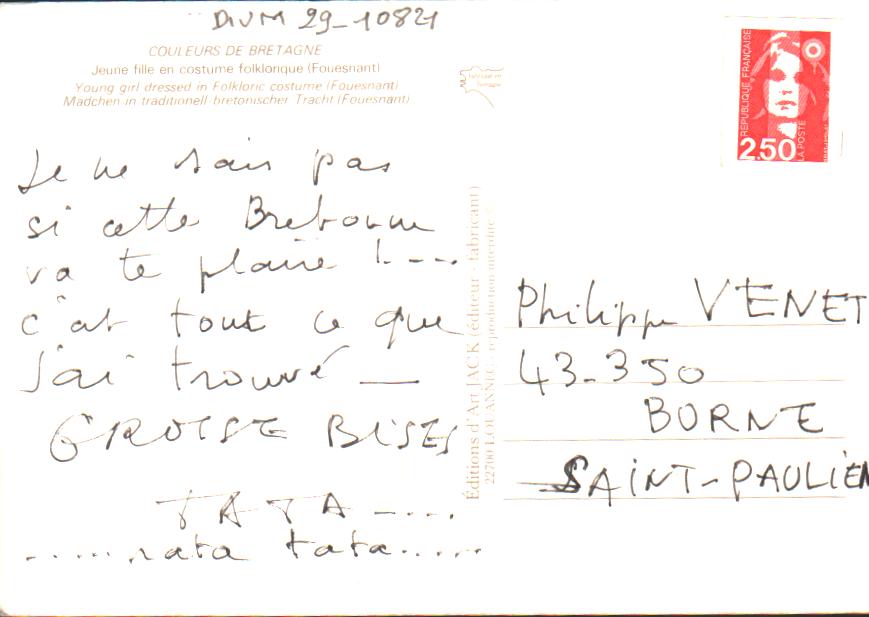 DIVM 29-10821
COULEURS DE BRETAGNE
Jeune fille en costume folklorique (Fouesnant)
Young girl dressed in Folkloric costume (Fouesnant)
Mädchen in traditionell bretonischer Tracht (Fouesnant)
fabriqué en
Bretagne
RÉPUBLIQUE FRANÇAISE
2,50
LA POSTE
Je ne sais pas
si cette Bretonne
va te plaire !----
c'est tout ce que
j'ai trouvé —
GROISE BISES
TATA -....
......rata tata......
Éditions d'Art JACK (éditeur - fabricant)
22700 LOUANNEC reproduction interdite
Philippe VENET
43-350
BORNE
SAINT-PAULIEN